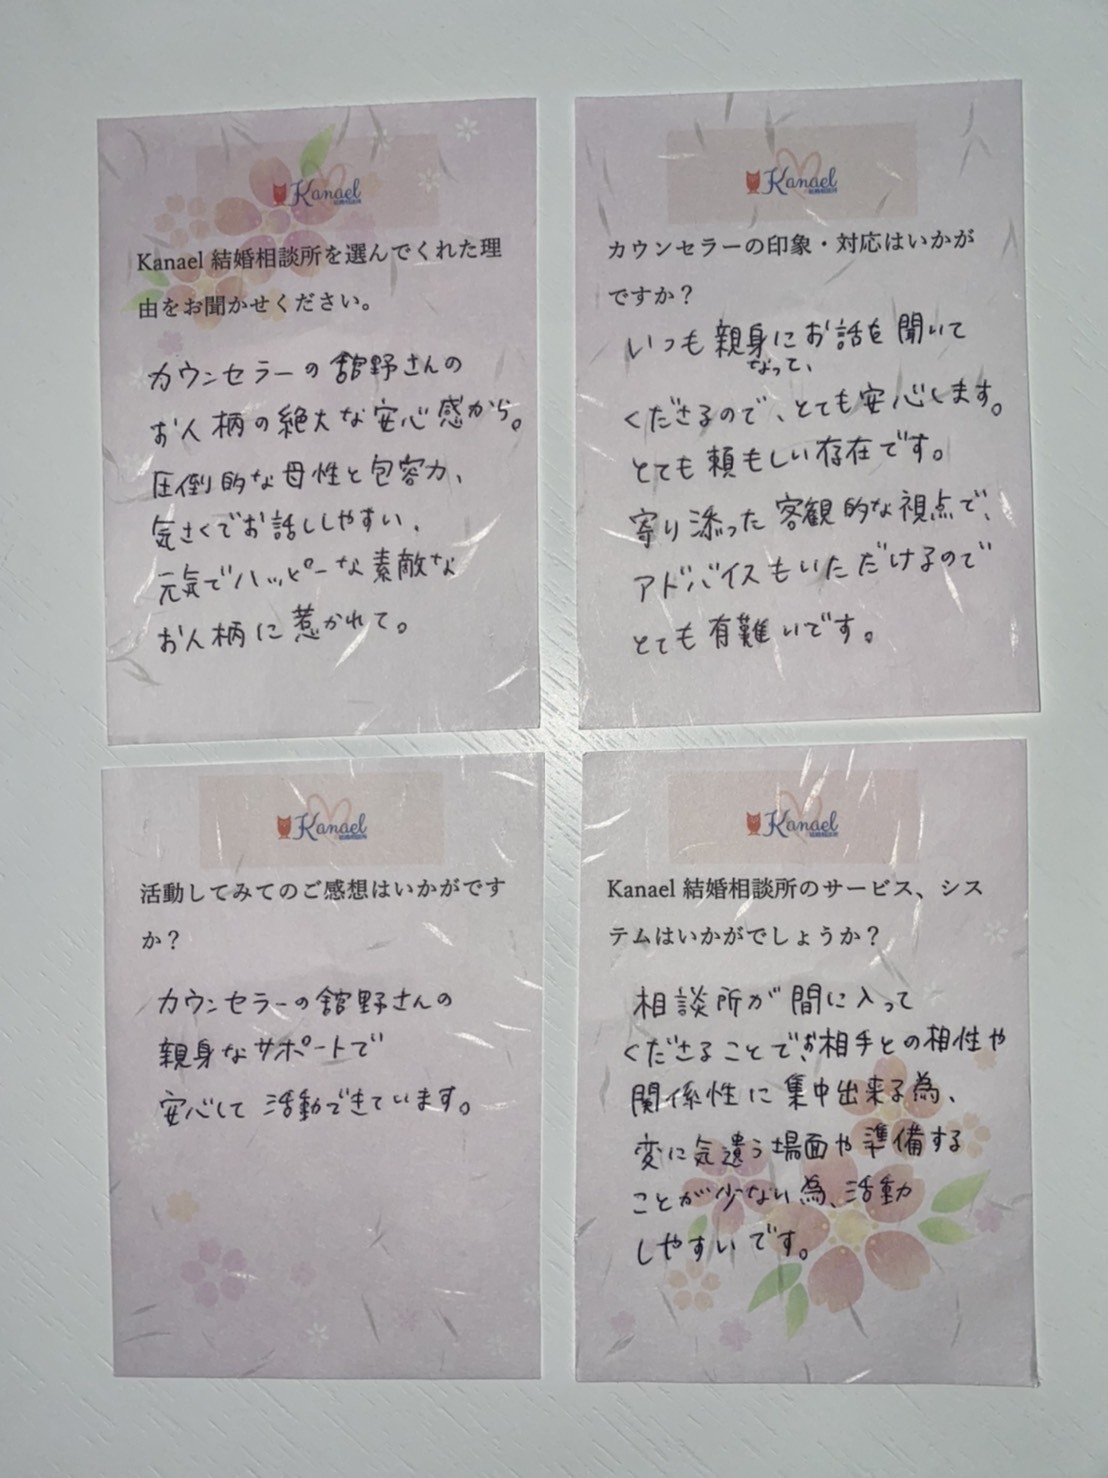 Kanael
結婚相談所
Kanael 結婚相談所を選んでくれた理
由をお聞かせください。
カウンセラーの舘野さんの
お人柄の絶大な安心感から。
圧倒的な母性と包容力、
気さくでお話ししやすい、
元気でハッピーな素敵な
お人柄に惹かれて。
Kanael
結婚相談所
カウンセラーの印象・対応はいかが
ですか？
いつも親身にお話を聞いて
なって、
くださるので、とても安心します。
とても頼もしい存在です。
寄り添った客観的な視点で、
アドバイスもいただけるので
とても有難いです。
Kanael
結婚相談所
活動してみてのご感想はいかがです
か？
カウンセラーの舘野さんの
親身なサポートで
安心して活動できています。
Kanael
結婚相談所
Kanael 結婚相談所のサービス、シス
テムはいかがでしょうか？
相談所が間に入って
くださることで、お相手との相性や
関係性に集中出来る為、
変に気遣う場面や準備する
ことが少ない為、活動
しやすいです。